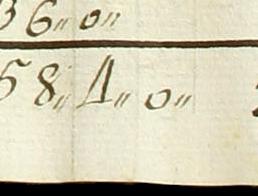 36〃 0〃
58〃 4〃 0〃